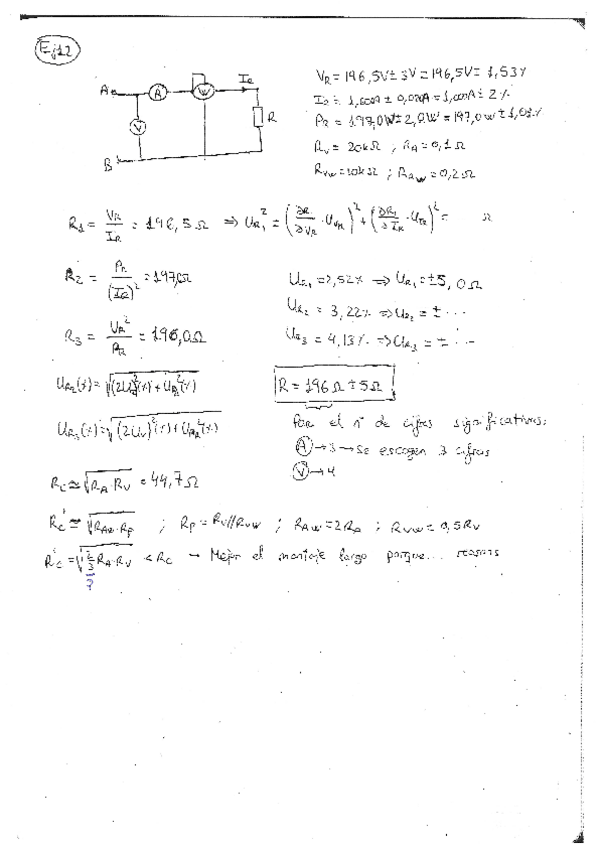 Ej 12
A A W IR
V R
B
VR = 196,5V ± 3V = 196,5V ± 1,53%
IR = 1,00A ± 0,02A = 1,00A ± 2%
PR = 197,0W ± 2,0W = 197,0W ± 1,03%
RV = 20kΩ ; RA = 0,1Ω
RVW = 10kΩ ; RAW = 0,2Ω
R1 = VR/IR = 196,5Ω ⇒ UR1² = (∂R/∂VR · UVR)² + (∂R1/∂IR · UIR)² = Ω
R2 = PR/(IR)² = 197,0Ω
UR1 = 2,52% ⇒ UR1 = ±5,0Ω
UR2 = 3,22% ⇒ UR2 = ± ...
R3 = VR²/PR = 196,0Ω
UR3 = 4,13% ⇒ UR3 = ± ...
R = 196Ω ± 5Ω
Por el nº de cifras significativas:
A → 3 → Se escogen 3 cifras
V → 4
RC ≃ √(RA·RV) = 44,7Ω
RC' ≃ √(RAW·RP) ; RP = RV//RVW ; RAW = 2RA ; RVW = 0,5RV
RC' = √(2/3 RA·RV) < RC → Mejor el montaje largo porque...
?